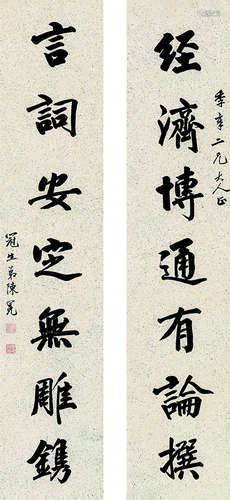 经濟博通有論撰
季韋二兄大人正
言詞安定無雕鐫
冠生弟陳冕